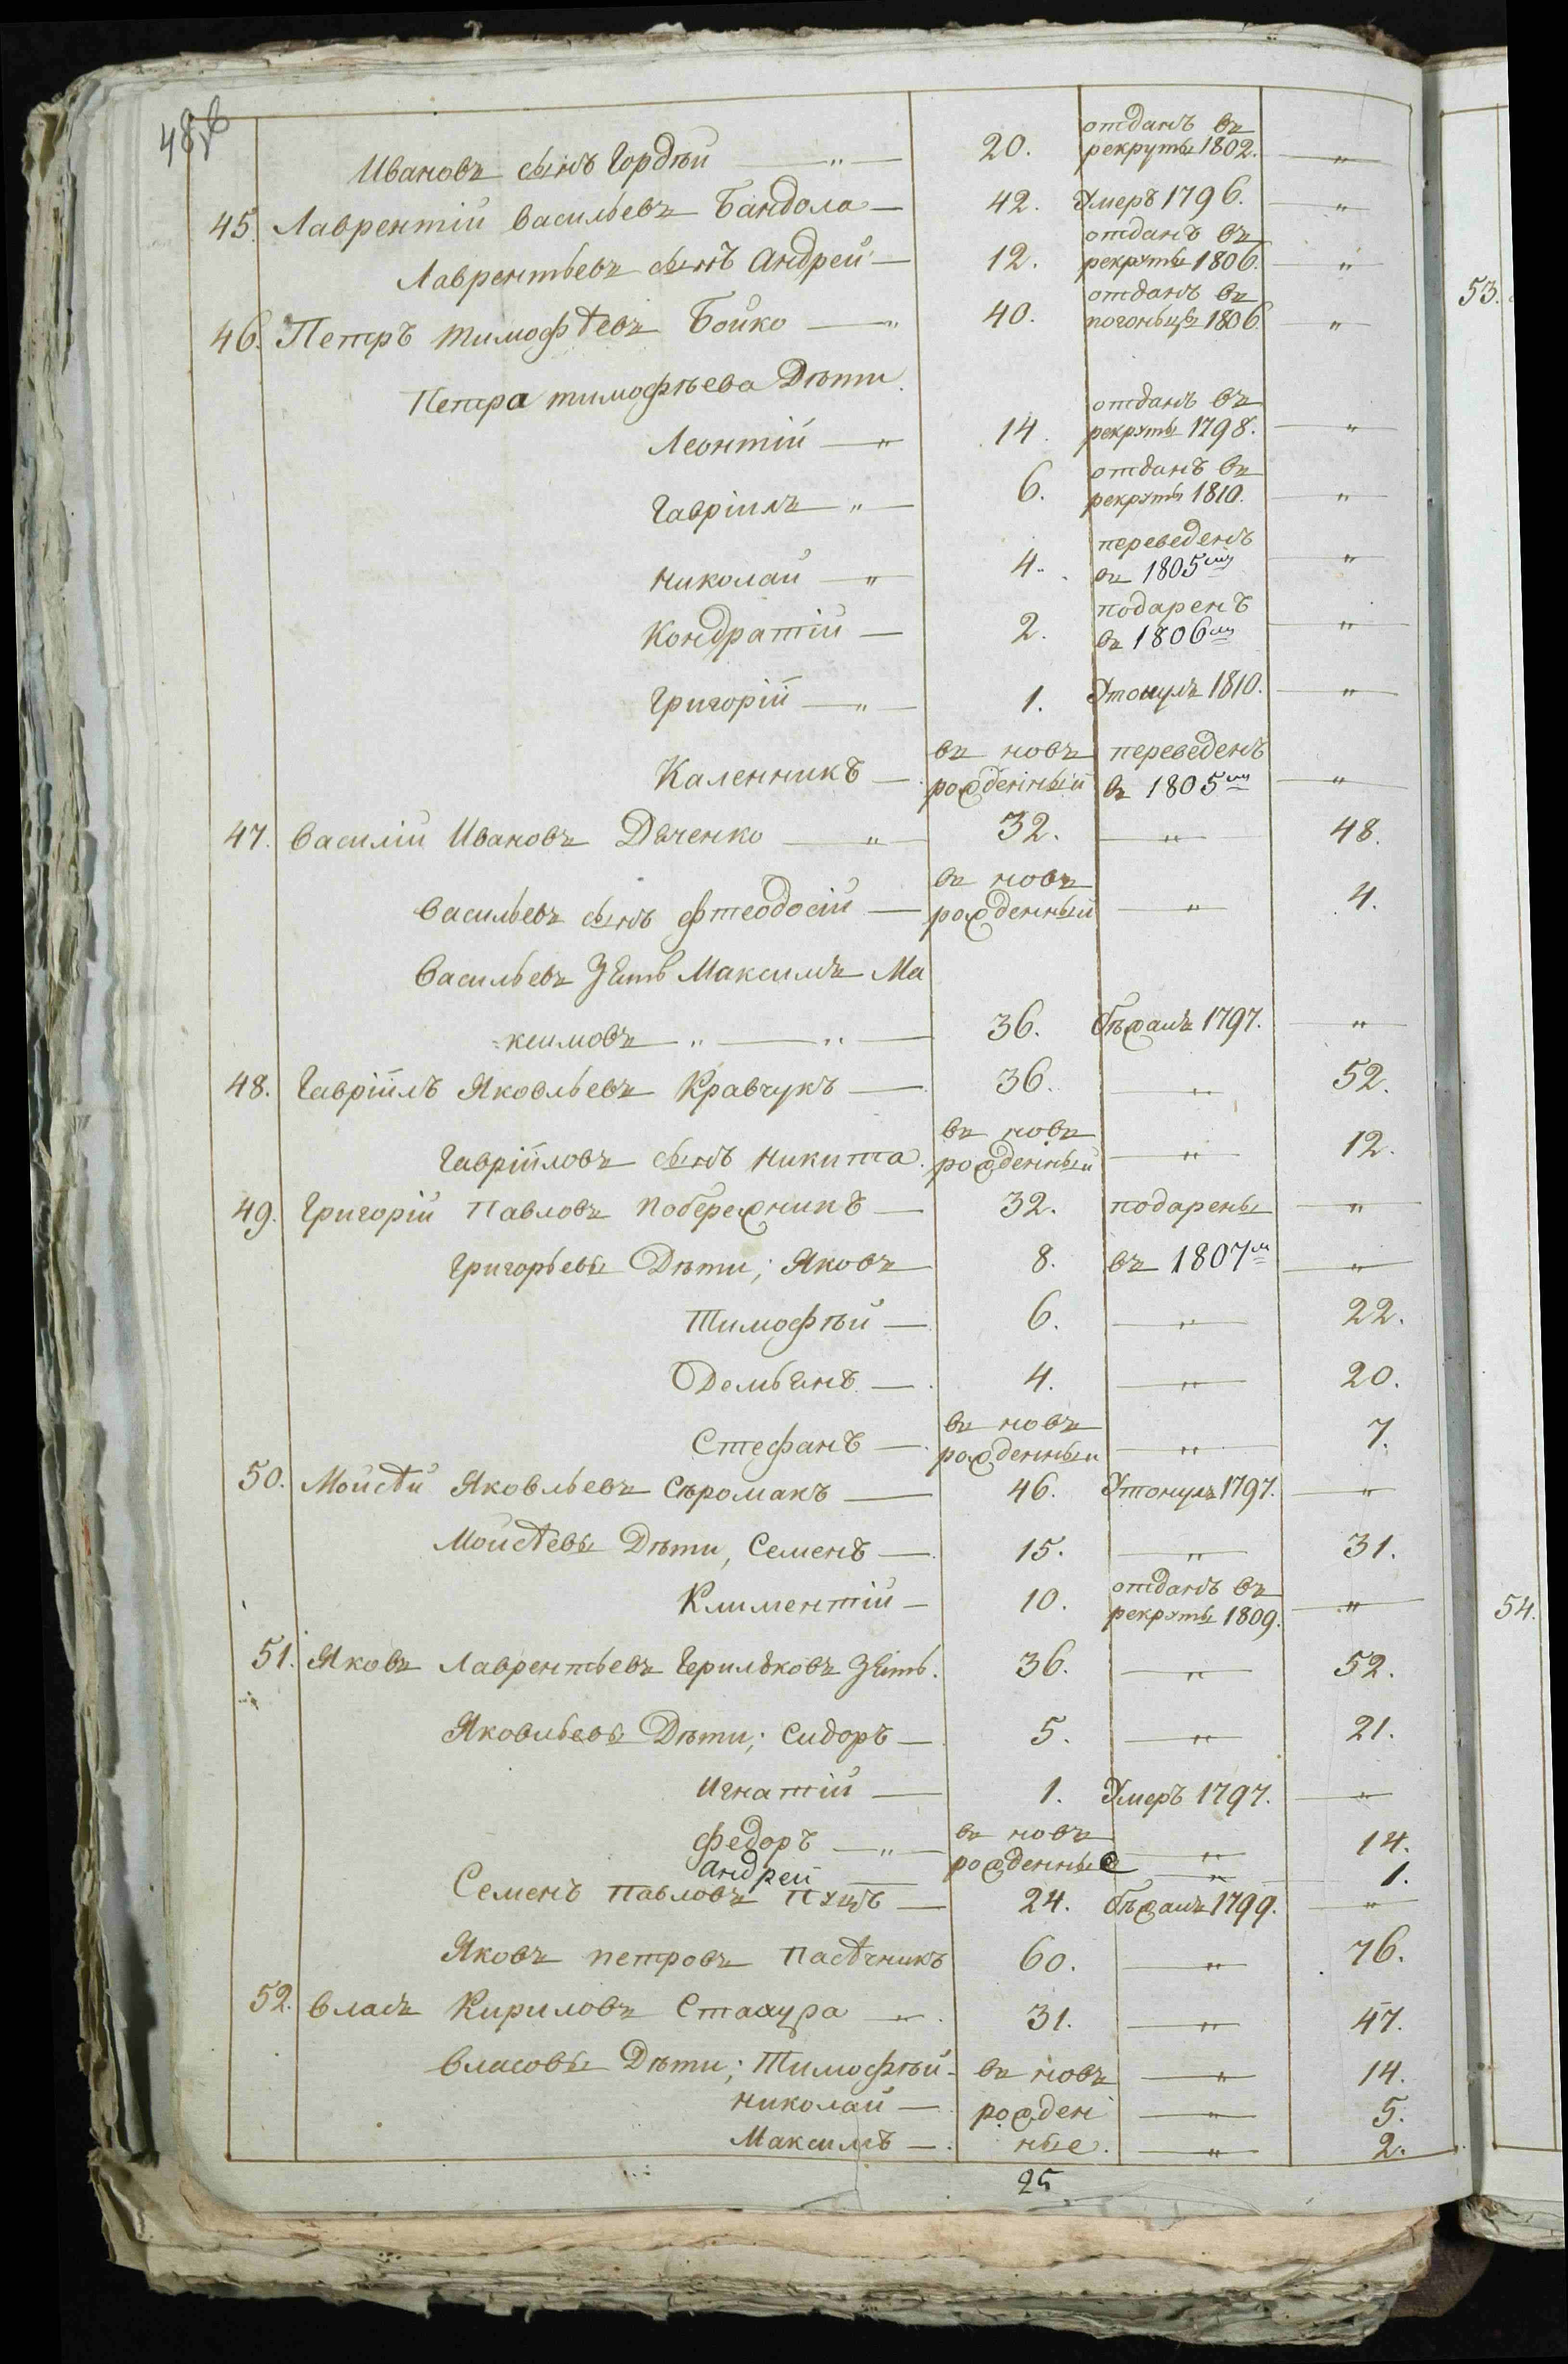 48
Ивановъ сынъ Гордѣй — 20. отданъ въ
рекруты 1802. — „
45. Лаврентій Васильевъ Бандола — 42. Умеръ 1796. — „
Лаврентьевъ сынъ Андрей — 12. отданъ въ
рекруты 1806. — „
46. Петръ Тимофѣевъ Бойко — „ 40. отданъ въ
погоньцы 1806. — „
Петра Тимофѣева Дѣти.
Леонтій — „ 14. отданъ въ
рекруты 1798. — „
Гавріилъ — „ 6. отданъ въ
рекруты 1810. — „
Николай — „ 4. переведенъ
въ 1805мъ — „
Кондратій — 2. подаренъ
въ 1806мъ — „
Григорій — „ 1. Утонулъ 1810. — „
Каленникъ — въ новъ переведенъ
рожденный въ 1805мъ — „
47. Василій Ивановъ Дяченко — „ 32. — „ 48.
Васильевъ сынъ Фтеодосій — въ новъ
рожденный — „ 4.
Васильевъ Зять Максимъ Ма
=ксимовъ — „ — „ — 36. бѣжалъ 1797. — „
48. Гавріилъ Яковльевъ Кравчукъ — 36. — „ 52.
Гавріиловъ сынъ Никита. въ новъ
рожденный — „ 12.
49. Григорій Павловъ Побережникъ — 32. подарены — „
Григорьевы Дѣти; Яковъ — 8. въ 1807м — „
Тимофѣй — 6. — „ 22.
Демьянъ — 4. — „ 20.
Стефанъ — въ новъ
рожденный — „ 7.
50. Моисѣй Яковльевъ Сѣромакъ — 46. Утонулъ 1797. — „
Моисѣевы Дѣти, Семенъ — 15. — „ 31.
Климентій — 10. отданъ въ
рекруты 1809. — „
51. Яковъ Лаврентьевъ Зять. 36. — „ 52.
Яковльевы Дѣти; Сидоръ — 5. — „ 21.
Игнатій — 1. Умеръ 1797. — „
Федоръ — „ въ новъ — „ 14.
Андрей — рожденные — „ 1.
Семенъ Павловъ — 24. бѣжалъ 1799. — „
Яковъ Петровъ Пасѣчникъ 60. — „ 76.
52. Власъ Кириловъ — „ 31. — „ 47.
Власовы Дѣти; Тимофѣй — въ новъ — „ 14.
Николай — рожден — „ 5.
Максимъ — ные. — „ 2.
25
53.
54.